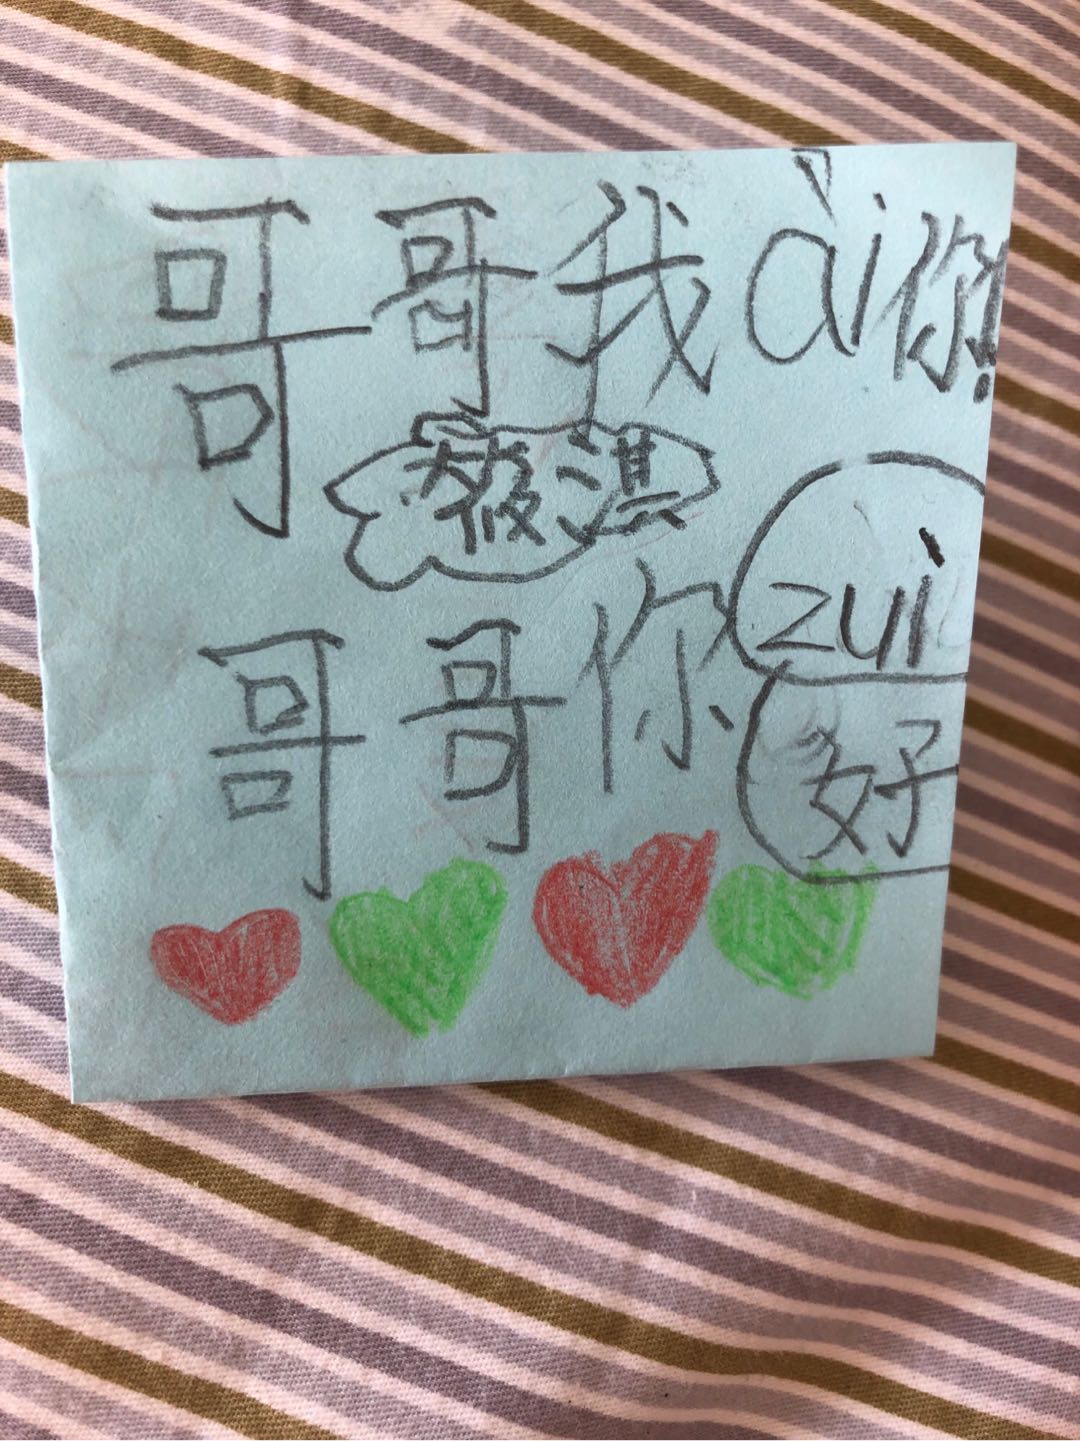 哥哥我ài你!
哥哥你zuì
好